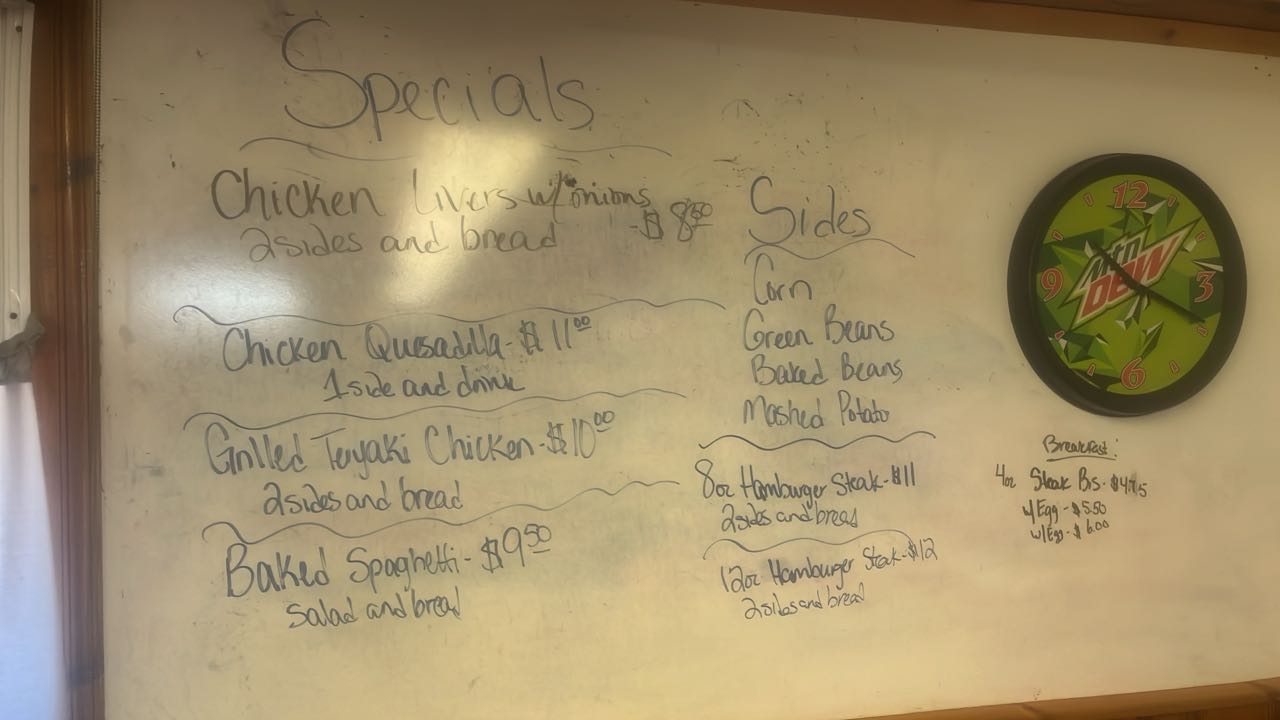 Specials
Chicken Livers w/ onions
2 sides and bread - $8.50
Chicken Quesadilla - $11.00
1 side and drink
Grilled Teryaki Chicken - $10.00
2 sides and bread
Baked Spaghetti - $9.50
salad and bread
Sides
Corn
Green Beans
Baked Beans
Mashed Potato
8oz Hamburger Steak - $11
2 sides and bread
12oz Hamburger Steak - $12
2 sides and bread
12
3
6
9
Mtn
DEW
Breakfast:
4oz Steak Bis - $4.75
w/ Egg - $5.50
w/ Egg - $6.00